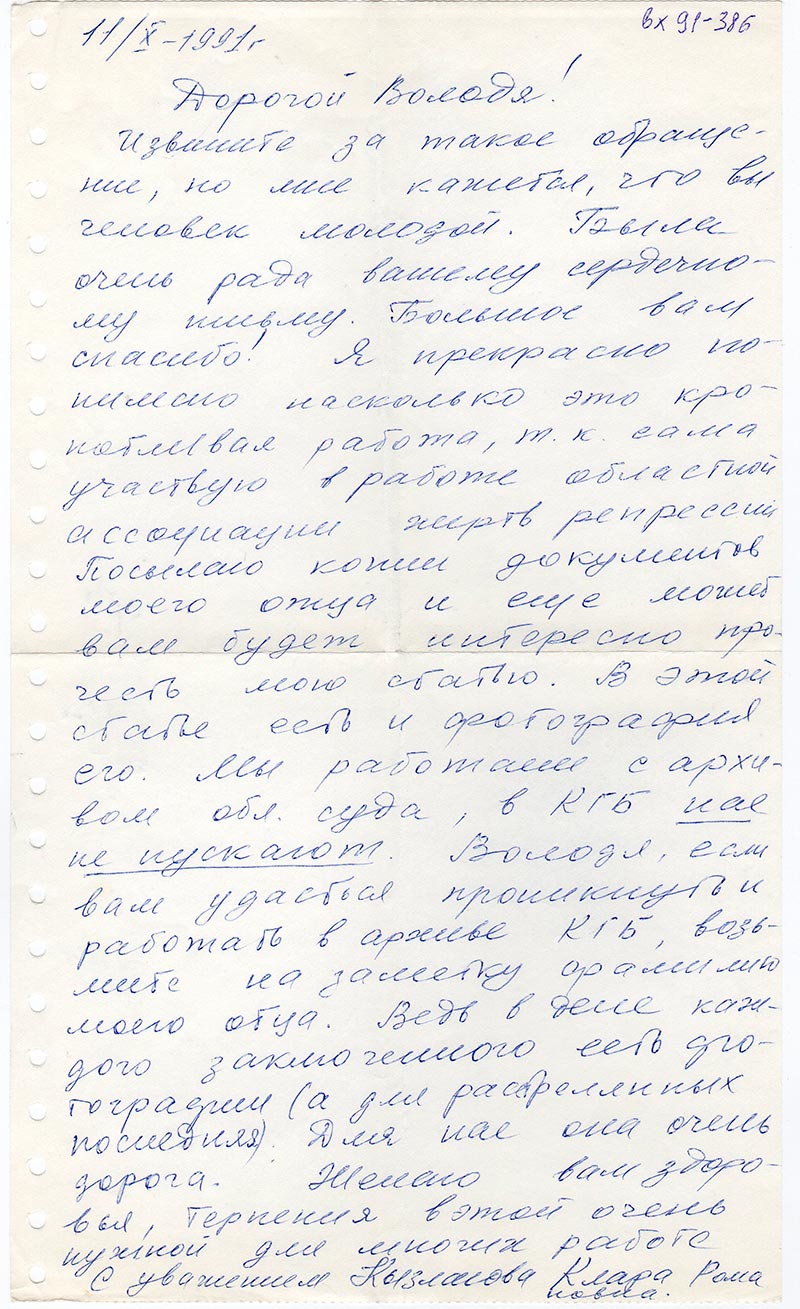 11/X-1991г
вх 91-386
Дорогой Володя!
Извините за такое обраще-
ние, но мне кажется, что вы
человек молодой. Была
очень рада вашему сердечно-
му письму. Большое вам
спасибо! Я прекрасно по-
нимаю насколько это кро-
потливая работа, т.к. сама
участвую в работе областной
ассоциации жертв репрессий
Посылаю копии документов
моего отца и еще может
вам будет интересно про-
честь мою статью. В этой
статье есть и фотография
его. Мы работаем с архи-
вом обл. суда, в КГБ нас
не пускают. Володя, если
вам удасться проникнуть и
работать в архиве КГБ, возь-
мите на заметку фамилию
моего отца. Ведь в деле каж-
дого заключенного есть фо-
тографии (а для растрелянных
последняя). Для нас она очень
дорога. Желаю вам здоро-
вья, терпения в этой очень
нужной для многих работе
С уважением Кызласова Клара Рома
новна.